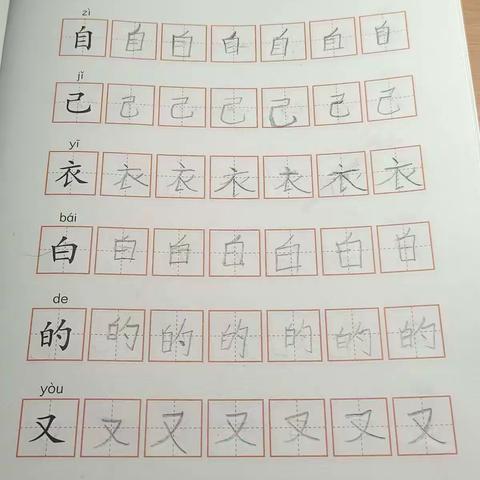 zì
自自自自自自自
jǐ
己己己己己己己
yī
衣衣衣衣衣衣衣
bái
白白白白白白白
de
的的的的的的的
yòu
又又又又又又又